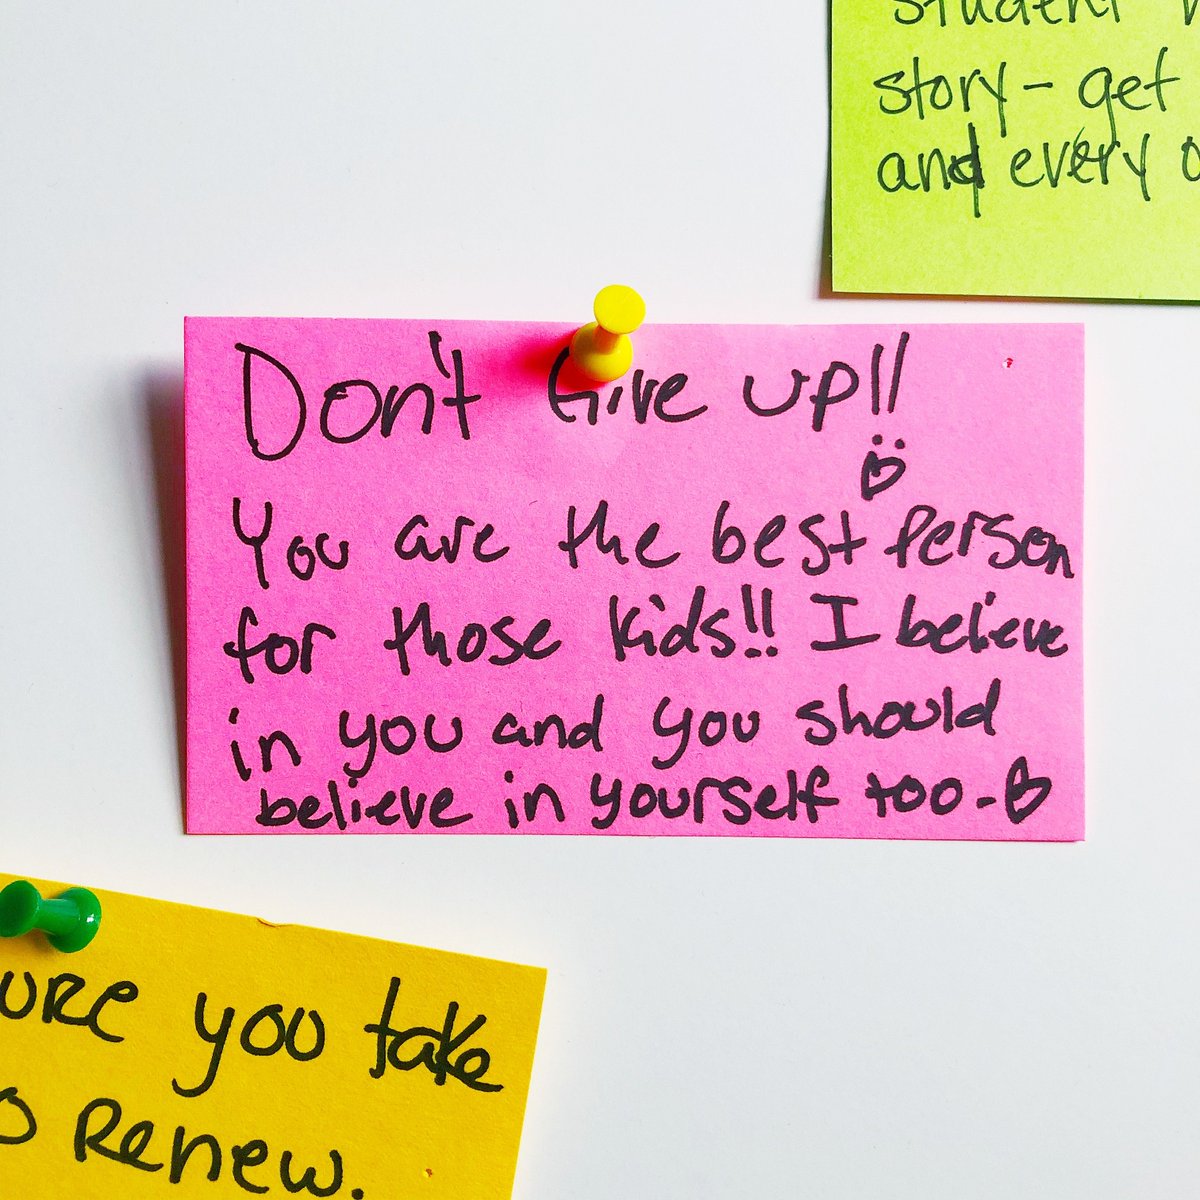 student
story - get
and every
Don't Give up!!
You are the best Person
for those kids!! I believe
in you and you should
believe in yourself too -
you take
Renew.